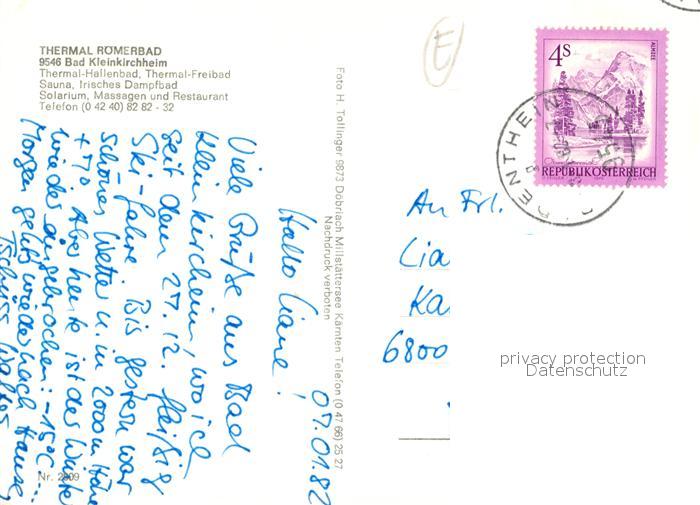 THERMAL RÖMERBAD
9546 Bad Kleinkirchheim
Thermal-Hallenbad, Thermal-Freibad
Sauna, Irisches Dampfbad
Solarium, Massagen und Restaurant
Telefon (0 42 40) 82 82 - 32
07.01.82
Hallo Liane!
Viele Grüße aus Bad
Kleinkirchheim, wo ich
seit dem 27.12. fleißig
Ski-fahre. Bis gestern war
schönes Wetter u. in 2000m Höhe
+ 7° Aber heute ist der Winter
wieder eingebrochen: -15°C...
Morgen geht's wieder nach Hause,
Tschüss Walter
Nr. 2809
Foto H. Tollinger 9873 Döbriach Millstättersee Kärnten Telefon (0 47 66) 25 27
Nachdruck verboten
E
4S
ALMSEE
REPUBLIK ÖSTERREICH
RENTHEIN
An Frl.
Lia
Ka
6800
privacy protection
Datenschutz